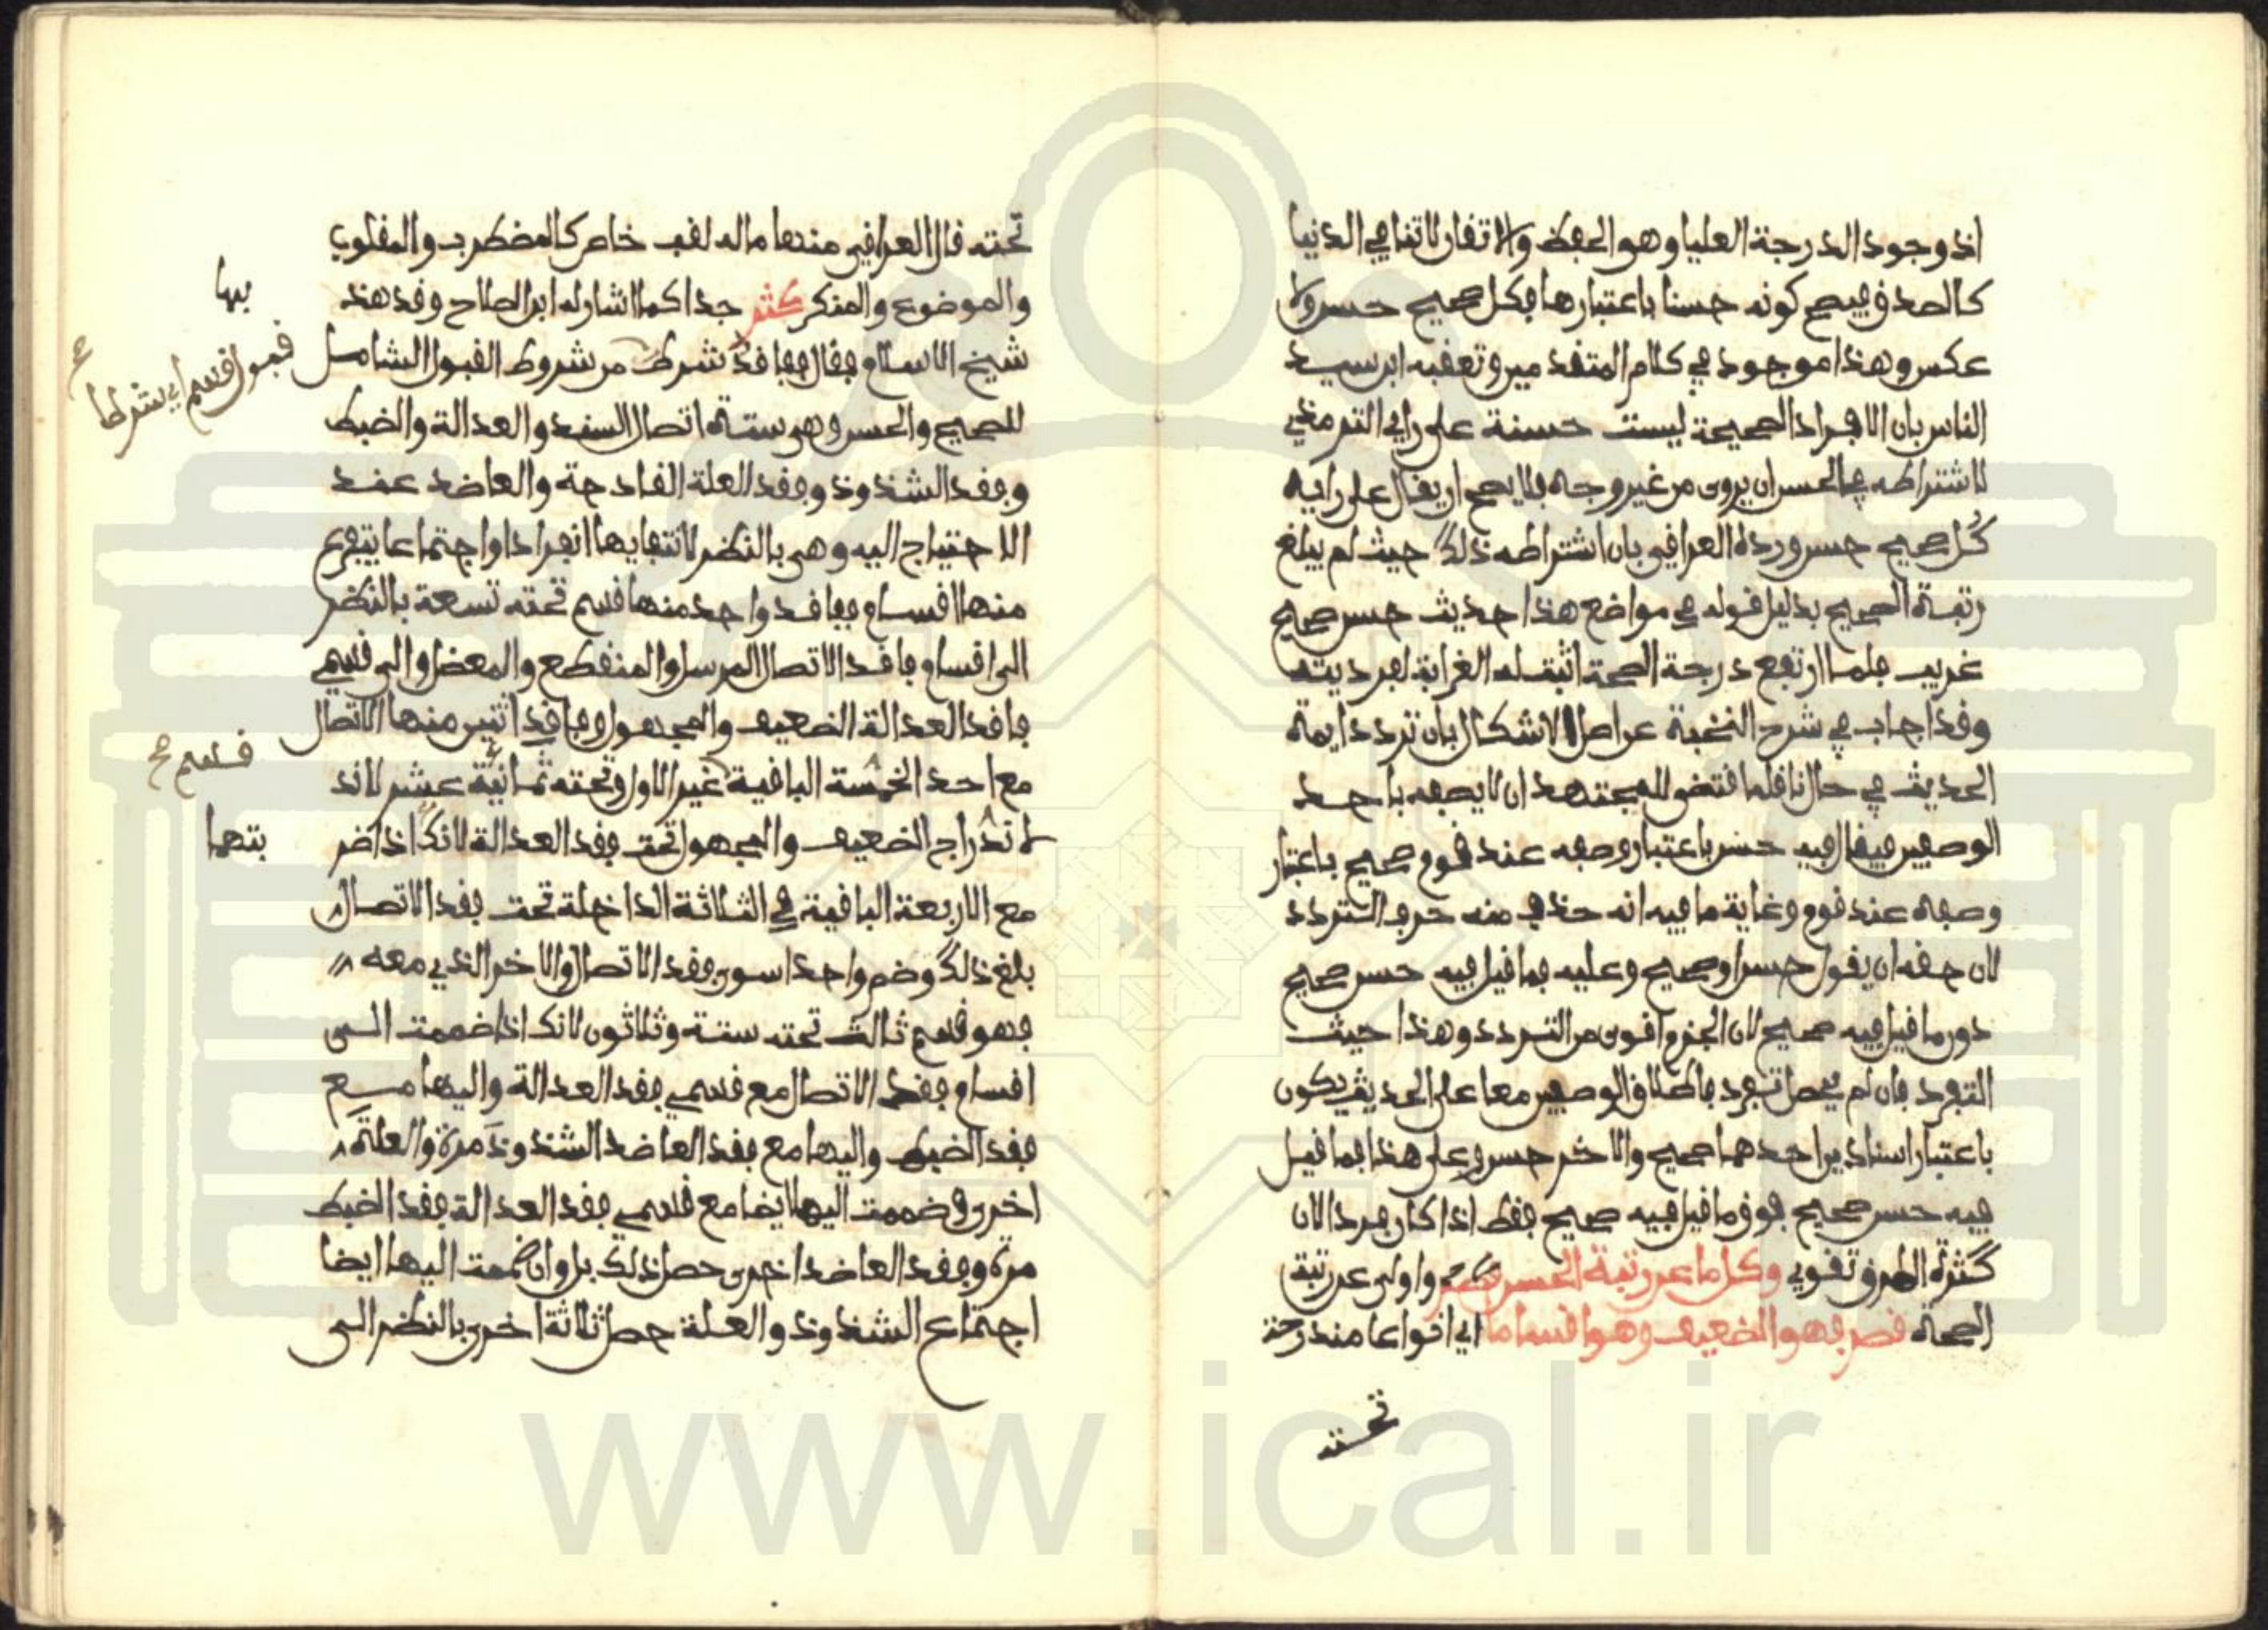 اذ وجود الدرجة العليا وهو الحفظ والاتقان لا تنافي الدنيا
كالصدق فيصح كونه حسنا باعتبارها فكل صحيح حسن ولا
عكس وهذا موجود في كلام المتقدمين وتعقبه ابن سيد
الناس بان الافراد الصحيحة ليست حسنة على راي الترمذي
لاشتراطه في الحسن ان يروى من غير وجه فلا يصح ان يقال على رايه
كل صحيح حسن ورده العراقي بان اشتراطه ذلك حيث لم يبلغ
رتبة الصحيح بدليل قوله في مواضع هذا حديث حسن صحيح
غريب فلما ارتفع درجة الصحة اثبت له الغرابة لفرديته
وقد اجاب في شرح النخبة عن اصل الاشكال بان تردد ايمة
الحديث في حال ناقله اقتضى للمجتهد ان لا يصفه باحد
الوصفين فيقال فيه حسن باعتبار وصفه عند قوم صحيح باعتبار
وصفه عند قوم وغاية ما فيه انه حذف منه حرف التردد
لان حقه ان يقول حسن او صحيح وعليه فما قيل فيه حسن صحيح
دون ما قيل فيه صحيح لان الجزم اقوى من التردد وهذا حيث
التفرد فان لم يحصل تفرد فاطلاق الوصفين معا على الحديث يكون
باعتبار اسنادين احدهما صحيح والاخر حسن وعلى هذا فما قيل
فيه حسن صحيح فوق ما قيل فيه صحيح فقط اذا كان فردا لان
كثرة الطرق تقوي وكل ما عن رتبة الحسن قصر واولى عن رتبة
الصحة قصر فهو الضعيف وهو اقساما اي انواعا مندرجة
تحته
تحته قال العراقي منها ما له لقب خاص كالمضطرب والمقلوب
والموضوع والمنكر كثر جدا كما اشار له ابن الصلاح وقد هذ
شيخ الاسلام فقال ففاقد شرط من شروط القبول الشامل
للصحيح والحسن وهي ستة اتصال السند والعدالة والضبط
وفقد الشذوذ وفقد العلة القادحة والعاضد عند
الاحتياج اليه وهي بالنظر لانتفايها انفرادا واجتماعا يتفرع
منها اقسام ففاقد واحد منها قسم تحته تسعة بالنظر
الى اقسام فاقد الاتصال المرسل والمنقطع والمعضل والى قسمي
فاقد العدالة الضعيف والمجهول وفاقد اثنين منها الاتصال
مع احد الخمسة الباقية غير الاول وتحته ثمانية عشر لاند
لاندراج الضعيف والمجهول تحت فقد العدالة لانك اذا ضر
مع الاربعة الباقية في الثلاثة الداخلة تحت فقد الاتصال
بلغ ذلك وضم واحدا سوى فقد الاتصال والاخر الذي معه
فهو قسم ثالث تحته ستة وثلاثون لانك اذا ضممت الى
اقسام فقد الاتصال مع قسمي فقد العدالة واليها مع
فقد الضبط واليها مع فقد العاضد الشذوذ مرة والعلة
اخرى وضممت اليها ايضا مع قسمي فقد العدالة فقد الضبط
مرة وفقد العاضد اخرى حصل ذلك بل وان ضممت اليها ايضا
اجتماع الشذوذ والعلة حصل ثلاثة اخرى بالنظر الى
بها
قبول قسم اي شرطا
صح
قسم صح
بتها